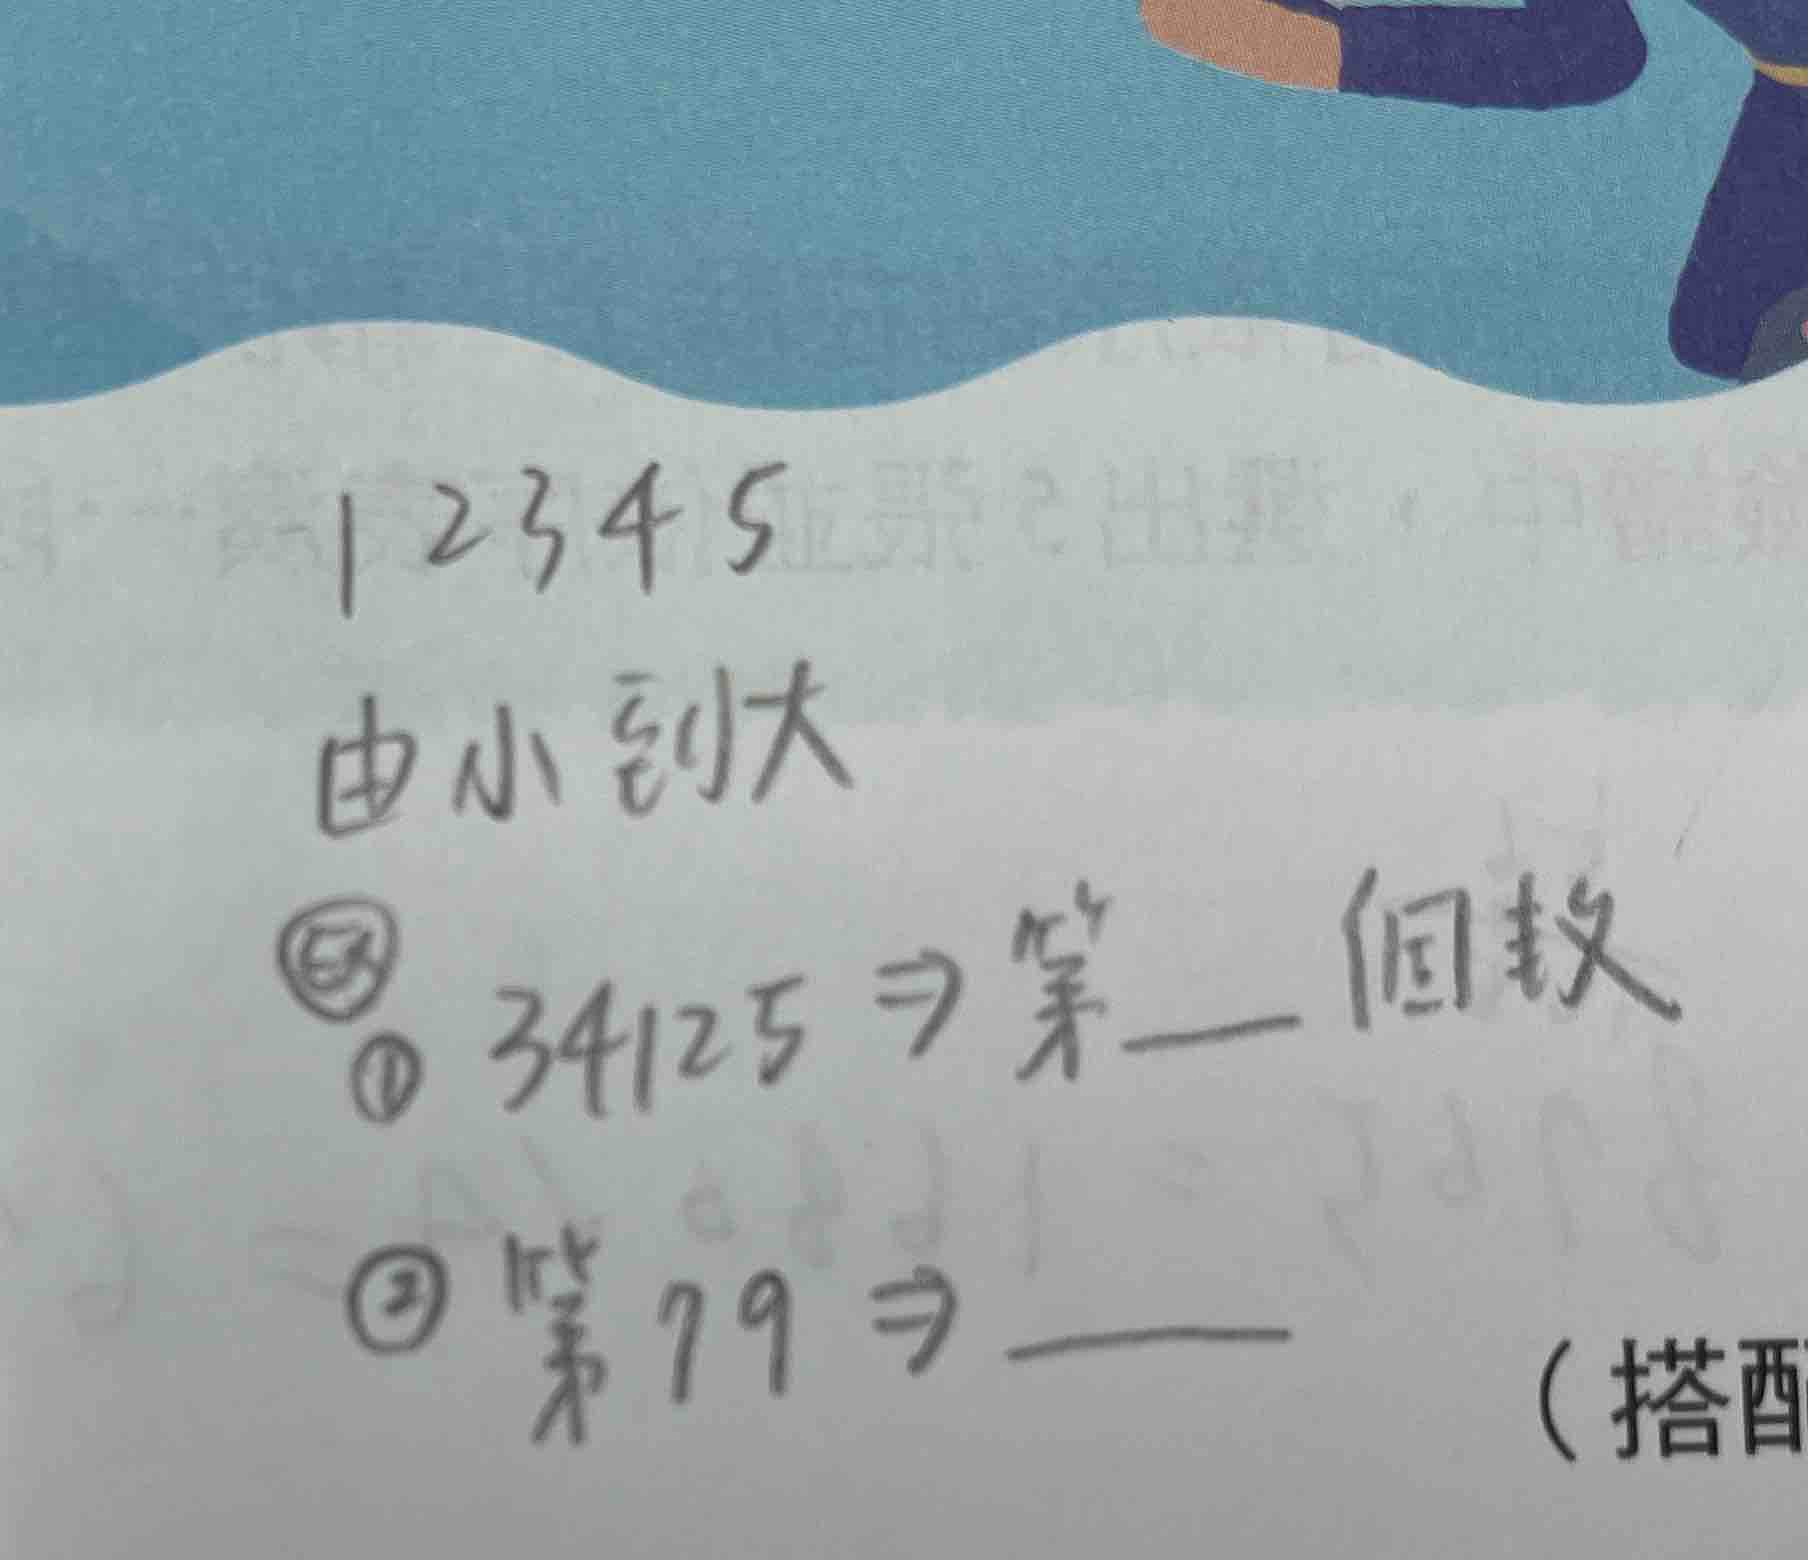 1 2 3 4 5
由小到大
Ex
① 34125 ⇒ 第__個數
② 第79 ⇒ ____
(搭配